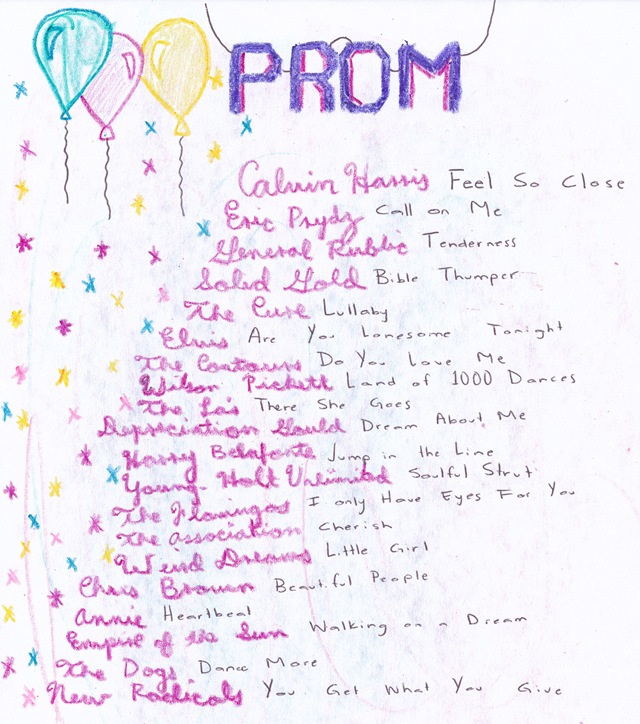 PROM
Calvin Harris Feel So Close
Eric Prydz Call on Me
General Public Tenderness
Solid Gold Bible Thumper
The Cure Lullaby
Elvis Are You Lonesome Tonight
The Contours Do You Love Me
Wilson Pickett Land of 1000 Dances
The La's There She Goes
Depreciation Guild Dream About Me
Harry Belafonte Jump in the Line
Young-Holt Unlimited Soulful Strut
The Flamingos I only Have Eyes For You
The Association Cherish
Weird Dreams Little Girl
Chris Brown Beautiful People
Annie Heartbeat
Empire of the Sun Walking on a Dream
The Dogs Dance More
New Radicals You Get What You Give